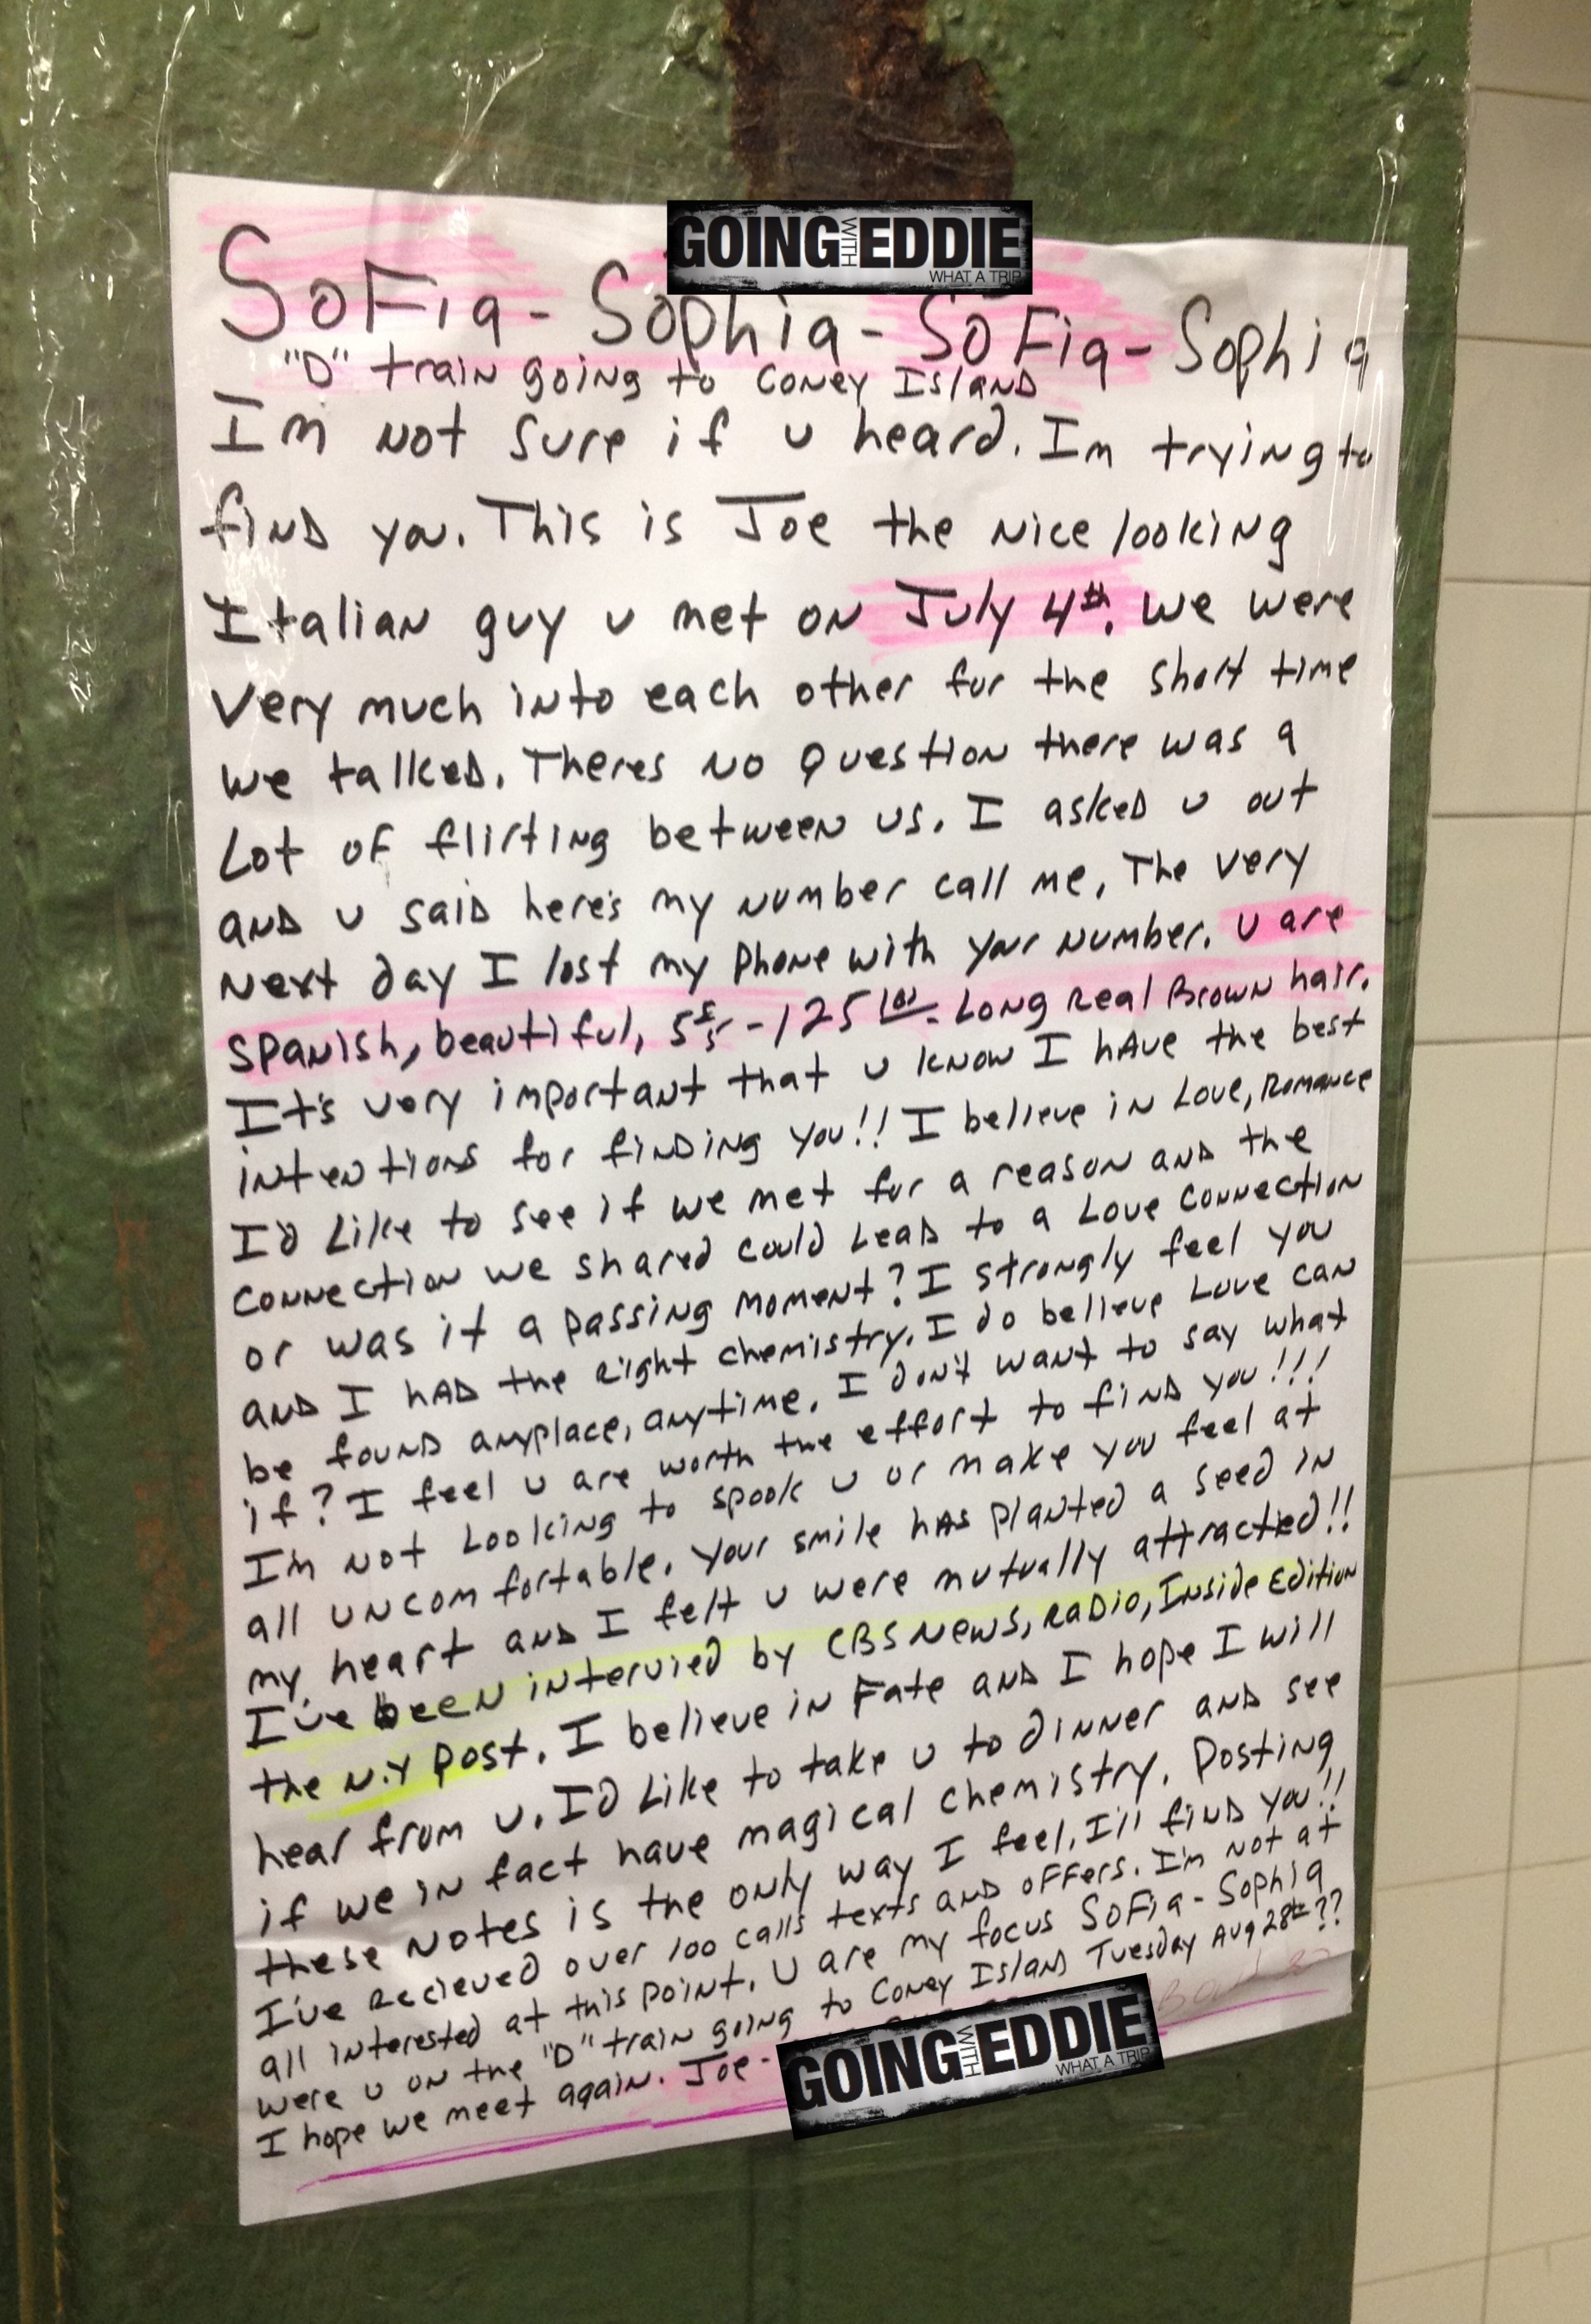 GOING WITH EDDIE
WHAT A TRIP
SoFia - Sophia - SoFia - Sophia
"D" train going to Coney Island
Im not sure if u heard. Im trying to
find you. This is Joe the nice looking
Italian guy u met on July 4th. We were
very much into each other for the short time
we talked. Theres no question there was a
Lot of flirting between us. I asked u out
and u said here's my number call me, The very
next day I lost my phone with your number. U are
spanish, beautiful, - 125 lbs. Long Real Brown hair.
It's very important that u know I have the best
intentions for finding you!! I believe in Love, Romance
I'd Like to see if we met for a reason and the
connection we shared could Lead to a Love connection
or was it a passing moment? I strongly feel you
and I had the right chemistry. I do believe Love can
be found anyplace, anytime. I don't want to say what
if? I feel u are worth the effort to find you!!!
I'm not Looking to spook u or make you feel at
all uncomfortable. Your smile has planted a seed in
my heart and I felt u were mutually attracted!!
I've been intervied by CBS News, Radio, Inside Edition
the N.Y Post. I believe in Fate and I hope I will
hear from u. I'd Like to take u to dinner and see
if we in fact have magical chemistry. Posting
these notes is the only way I feel, I'll find you!!
I've recieved over 100 calls texts and offers. I'm not at
all interested at this point. U are my focus SoFia - Sophia
were u on the "D" train going to Coney Island Tuesday Aug 28th??
I hope we meet again. Joe -
GOING WITH EDDIE
WHAT A TRIP